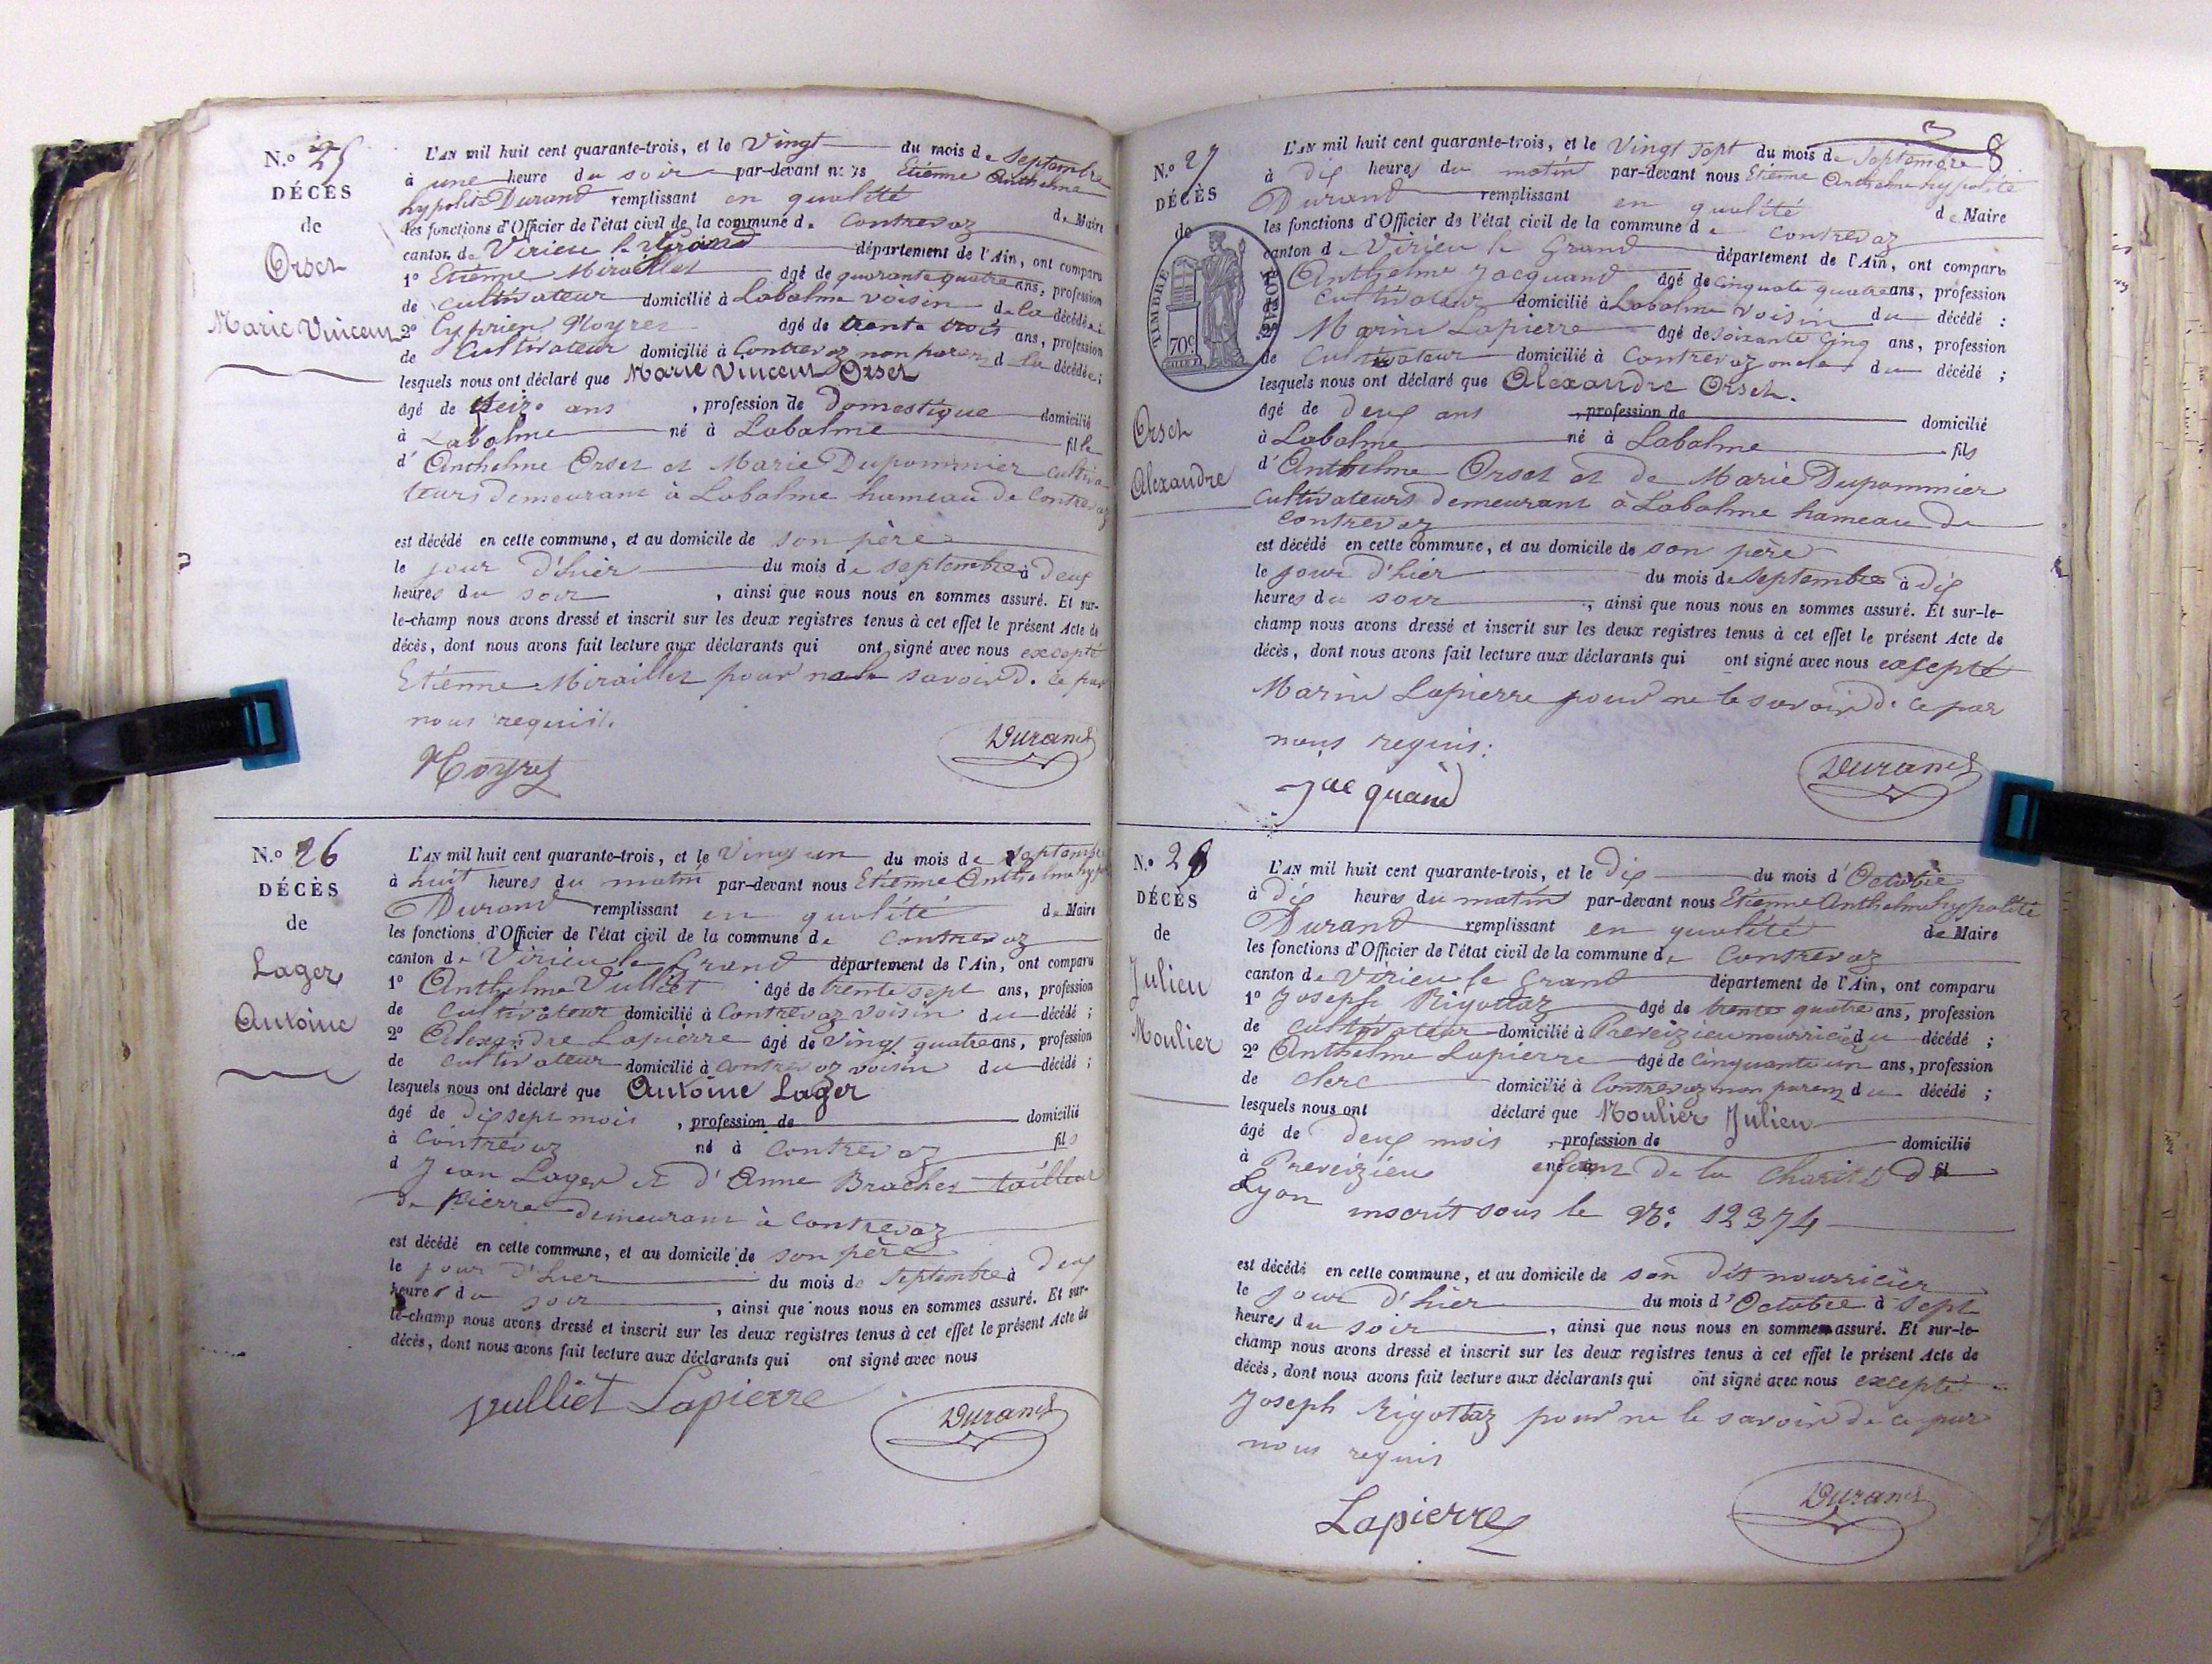 N.º 25
DÉCÈS
de
Orset
Marie Vincent
L'AN mil huit cent quarante-trois, et le Vingt du mois de Septembre
à une heure du soir par-devant nous Etienne Anthelme
hypolite Durand remplissant en qualité de Maire
les fonctions d'Officier de l'état civil de la commune de Contrevoz
canton de Virieu le Grand département de l'Ain, ont comparu
1º Etienne Miraillet âgé de quarante quatre ans, profession
de cultivateur domicilié à Labalme voisin de la décédée;
2º Cyprien Moyret âgé de trente trois ans, profession
de Cultivateur domicilié à Contrevoz non parent de la décédée;
lesquels nous ont déclaré que Marie Vincent Orset
âgé de seize ans, profession de Domestique domicilié
à Labalme né à Labalme fille
d'Anthelme Orset et Marie Dupommier cultiva-
teurs demeurant à Labalme hameau de Contrevoz
est décédé en cette commune, et au domicile de son père
le jour d'hier du mois de septembre à deux
heures du soir, ainsi que nous nous en sommes assuré. Et sur-
le-champ nous avons dressé et inscrit sur les deux registres tenus à cet effet le présent Acte de
décès, dont nous avons fait lecture aux déclarants qui ont signé avec nous excepté
Etienne Miraillet pour ne le savoir d. ce par
nous requis.
Moyret Durand
N.º 26
DÉCÈS
de
Lager
Antoine
L'AN mil huit cent quarante-trois, et le Vingt un du mois de septembre
à huit heures du matin par-devant nous Etienne Anthelme hypo
Durand remplissant en qualité de Maire
les fonctions d'Officier de l'état civil de la commune de Contrevoz
canton de Virieu le Grand département de l'Ain, ont comparu
1º Anthelme Vulliet âgé de trente sept ans, profession
de cultivateur domicilié à Contrevoz voisin du décédé;
2º Alexandre Lapierre âgé de vingt quatre ans, profession
de cultivateur domicilié à contrevoz voisin du décédé;
lesquels nous ont déclaré que Antoine Lager
âgé de dix sept mois, profession de domicilié
à Contrevoz né à Contrevoz fils
d Jean Lager et d'Anne Brachet tailleur
de Pierre demeurant à Contrevoz
est décédé en cette commune, et au domicile de son père
le jour d'hier du mois de septembre à deux
heures du soir, ainsi que nous nous en sommes assuré. Et sur-
le-champ nous avons dressé et inscrit sur les deux registres tenus à cet effet le présent Acte de
décès, dont nous avons fait lecture aux déclarants qui ont signé avec nous
Vulliet Lapierre Durand
8
N.º 27
DÉCÈS
de
TIMBRE ROYAL
70c
Orset
Alexandre
L'AN mil huit cent quarante-trois, et le Vingt sept du mois de Septembre
à dix heures du matin par-devant nous Etienne Anthelme hypolite
Durand remplissant en qualité de Maire
les fonctions d'Officier de l'état civil de la commune de Contrevoz
canton de Virieu le Grand département de l'Ain, ont comparu
Anthelme Jacquand âgé de cinquante quatre ans, profession
Cultivateur domicilié à Labalme voisin du décédé:
2º Marin Lapierre âgé de soixante cinq ans, profession
de Cultivateur domicilié à Contrevoz oncle du décédé;
lesquels nous ont déclaré que Alexandre Orset.
âgé de deux ans, profession de domicilié
à Labalme né à Labalme fils
d'Anthelme Orset et de Marie Dupommier
cultivateurs demeurant à Labalme hameau de
contrevoz
est décédé en cette commune, et au domicile de son père
le jour d'hier du mois de septembre à dix
heures du soir, ainsi que nous nous en sommes assuré. Et sur-le-
champ nous avons dressé et inscrit sur les deux registres tenus à cet effet le présent Acte de
décès, dont nous avons fait lecture aux déclarants qui ont signé avec nous excepté
Marin Lapierre pour ne le savoir d. ce par
nous requis.
Jacquand Durand
N.º 28
DÉCÈS
de
Julien
Moulier
L'AN mil huit cent quarante-trois, et le dix du mois d'Octobre
à dix heures du matin par-devant nous Etienne Anthelme hypolite
Durand remplissant en qualité de Maire
les fonctions d'Officier de l'état civil de la commune de Contrevoz
canton de Virieu le Grand département de l'Ain, ont comparu
1º Joseph Rigottaz âgé de trente quatre ans, profession
de cultivateur domicilié à Preveizieu nourricier du décédé;
2º Anthelme Lapierre âgé de cinquante un ans, profession
de clerc domicilié à Contrevoz non parent du décédé;
lesquels nous ont déclaré que Moulier Julien
âgé de deux mois, profession de domicilié
à Preveizieu enfant de la Charité d
Lyon inscrit sous le Nº. 12374
est décédé en cette commune, et au domicile de son dit nourricier
le jour d'hier du mois d'Octobre à sept
heures du soir, ainsi que nous nous en sommes assuré. Et sur-le-
champ nous avons dressé et inscrit sur les deux registres tenus à cet effet le présent Acte de
décès, dont nous avons fait lecture aux déclarants qui ont signé avec nous excepté
Joseph Rigottaz pour ne le savoir de ce par
nous requis
Lapierre Durand